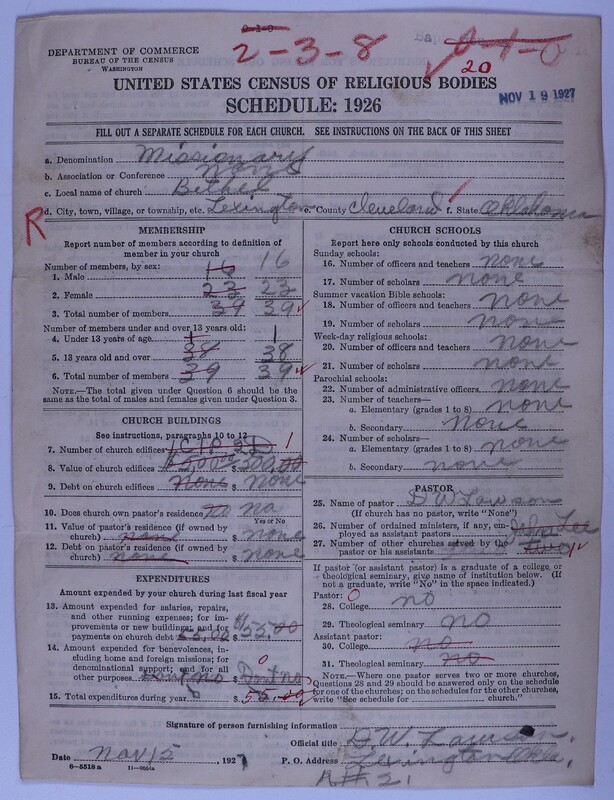 0-1-0
2-3-8
0-1-0
20
DEPARTMENT OF COMMERCE
BUREAU OF THE CENSUS
WASHINGTON
NOV 19 1927
UNITED STATES CENSUS OF RELIGIOUS BODIES
SCHEDULE: 1926
FILL OUT A SEPARATE SCHEDULE FOR EACH CHURCH. SEE INSTRUCTIONS ON THE BACK OF THIS SHEET
a. Denomination Missionary
b. Association or Conference None
c. Local name of church Bethel
R d. City, town, village, or township, etc. Lexington e. County Cleveland f. State Oklahoma
MEMBERSHIP
Report number of members according to definition of member in your church
Number of members, by sex:
1. Male 16 16
2. Female 23 23
3. Total number of members 39 39
Number of members under and over 13 years old:
4. Under 13 years of age 1 1
5. 13 years old and over 38 38
6. Total number of members 39 39
NOTE.—The total given under Question 6 should be
the same as the total of males and females given under Question 3.
CHURCH BUILDINGS
See instructions, paragraphs 10 to 12
7. Number of church edifices 1
8. Value of church edifices $ 500.00
9. Debt on church edifices None $ None
10. Does church own pastor's residence no no
Yes or No
11. Value of pastor's residence (if owned by
church) none $ none
12. Debt on pastor's residence (if owned by
church) none $ none
EXPENDITURES
Amount expended by your church during last fiscal year
13. Amount expended for salaries, repairs,
and other running expenses; for im-
provements or new buildings; and for
payments on church debt 55.00 $ 55.00
14. Amount expended for benevolences,
including home and foreign missions; for
denominational support; and for all
other purposes Dont no $ Dont no
0
15. Total expenditures during year $ 55.00
CHURCH SCHOOLS
Report here only schools conducted by this church
Sunday schools:
16. Number of officers and teachers none
17. Number of scholars none
Summer vacation Bible schools:
18. Number of officers and teachers none
19. Number of scholars none
Week-day religious schools:
20. Number of officers and teachers none
21. Number of scholars none
Parochial schools:
22. Number of administrative officers none
23. Number of teachers—
a. Elementary (grades 1 to 8) none
b. Secondary None
24. Number of scholars—
a. Elementary (grades 1 to 8) none
b. Secondary none
PASTOR
25. Name of pastor D W Lawson
(If church has no pastor, write "None")
26. Number of ordained ministers, if any, em-
ployed as assistant pastors
27. Number of other churches served by the
pastor or his assistants two 1
If pastor (or assistant pastor) is a graduate of a college or
theological seminary, give name of institution below. (If
not a graduate, write "No" in the space indicated.)
Pastor: 0
28. College no
29. Theological seminary no
Assistant pastor:
30. College no
31. Theological seminary no
NOTE.—Where one pastor serves two or more churches,
Questions 28 and 29 should be answered only on the schedule
for one of the churches; on the schedules for the other churches,
write "See schedule for church."
Signature of person furnishing information
Official title D. W. Lawson,
Date Nov 15, 1927 P. O. Address Lexington Okla,
6—5518 a 11—9664a R # 2.